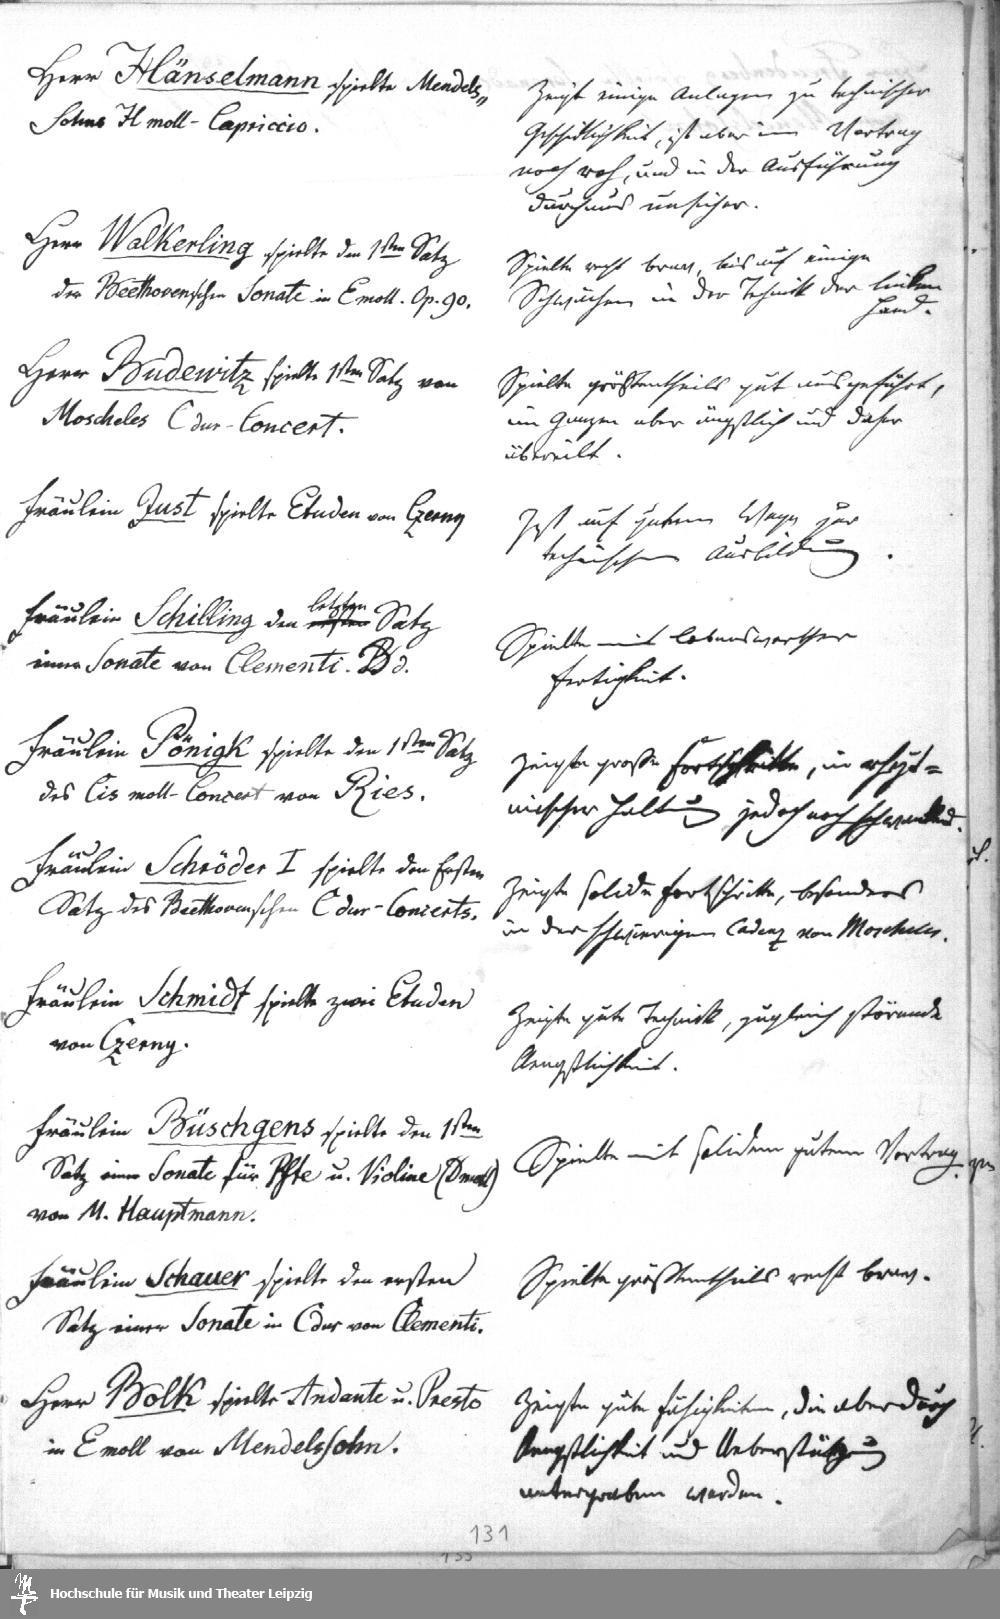 Herr Hänselmann spielte Mendels„
Sohns H moll-Capriccio.
Zeigt einige Anlagen zu technischer
Geschicklichkeit, ist aber im Vortrag
noch roh, und in der Ausführung
durchaus unsicher.
Herr Walkerling spielte den 1sten Satz
der Beethovenschen Sonate in Emoll. Op. 90.
Spielte recht brav, bis auf einige
Schwächen in der Technik der linken
Hand.
Herr Budewitz spielte 1sten Satz von
Moscheles C dur-Concert.
Spielte größtentheils gut ausgeführt,
im Ganzen aber ängstlich und daher
übereilt.
Fräulein Just spielte Etuden von Czerny
Ist auf gutem Wege zur
technischen Ausbildung.
Fräulein Schilling den letzten ersten Satz
einer Sonate von Clementi. B d.
Spielte mit lobenswerther
Fertigkeit.
Fräulein Pönigk spielte den 1sten Satz
des Cis moll-Concert von Ries.
Zeigte große Fortschritte, in rhyt=
mischer Haltung jedoch noch schwankend.
Fräulein Schröder I spielte den Ersten
Satz des Beethovenschen C dur-Concerts.
Zeigte solide Fortschritte, besonders
in der schwierigen Cadenz von Moscheles.
Fräulein Schmidt spielte zwei Etuden
von Czerny.
Zeigte gute Technick, zugleich störende
Aengstlichkeit.
Fräulein Büschgens spielte den 1sten
Satz einer Sonate für Pfte u. Violine (Dmoll)
von M. Hauptmann.
Spielte mit solidem gutem Vortrag.
Fräulein Schauer spielte den ersten
Satz einer Sonate in Cdur von Clementi.
Spielte größtentheils recht brav.
Herr Bolk spielte Andante u. Presto
in E moll von Mendelssohn.
Zeigte gute Fähigkeiten, die aber durch
Aengstlichkeit und Ueberstürzung
untergraben werden.
131
133
Hochschule für Musik und Theater Leipzig